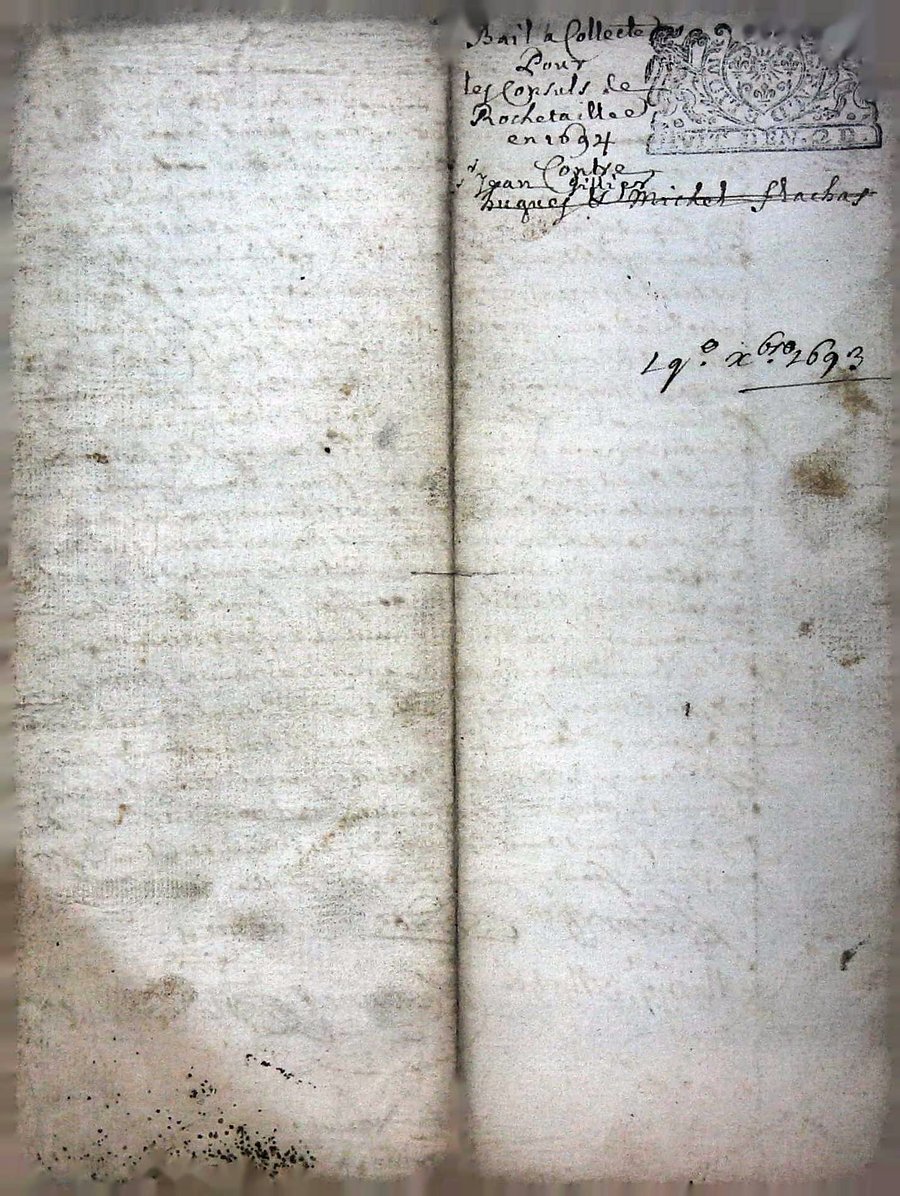 Bail a Collecte
Pour
les Consuls de
Rochetaillee
en 1694
Contre
Jean Gillier
hugues & Michel flachas
HUIT DEN. 2 D.
19e xbre 1693